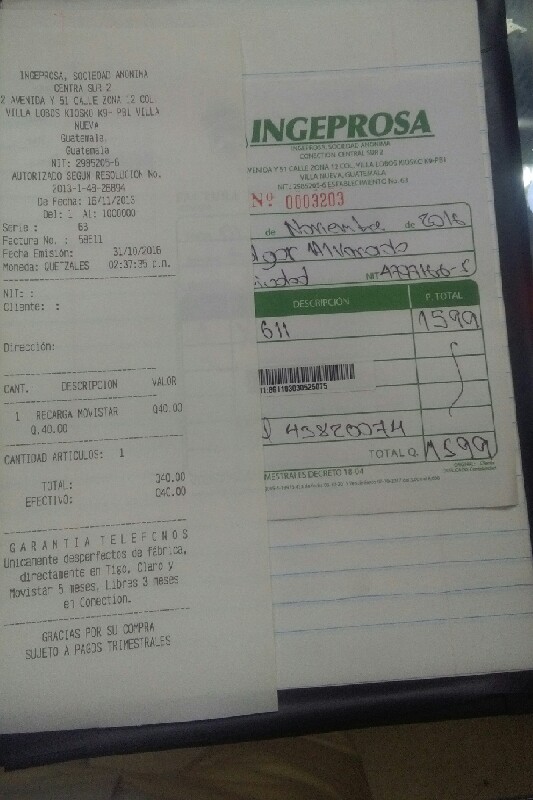 INGEPROSA, SOCIEDAD ANONIMA
CENTRA SUR 2
2 AVENIDA Y 51 CALLE ZONA 12 COL.
VILLA LOBOS KIOSKO K9- P51 VILLA
NUEVA
Guatemala,
Guatemala
NIT: 2985205-6
AUTORIZADO SEGUN RESOLUCION No.
2013-1-48-26894
De Fecha: 16/11/2013
Del: 1 Al: 1000000
Serie : 63
Factura No. : 58611
Fecha Emisión: 31/10/2016
Moneda: QUETZALES 02:37:35 p.m.
NIT: :
Cliente: :
Dirección:
CANT. DESCRIPCION VALOR
1 RECARGA MOVISTAR Q40.00
Q.40.00
CANTIDAD ARTICULOS: 1
TOTAL: Q40.00
EFECTIVO: Q40.00
GARANTIA TELEFONOS
Unicamente desperfectos de fábrica,
directamente en Tigo, Claro y
Movistar 5 meses, Libres 3 meses
en Conection.
GRACIAS POR SU COMPRA
SUJETO A PAGOS TRIMESTRALES
INGEPROSA
INGEPROSA, SOCIEDAD ANONIMA
CONECTION CENTRAL SUR 2
AVENIDA Y 51 CALLE ZONA 12 COL. VILLA LOBOS KIOSKO K9-P51
VILLA NUEVA, GUATEMALA
NIT.: 2985205-6 ESTABLECIMIENTO No. 63
Nº 0003203
de Noviembre de 2016
dgar Alvarado
iudad NIT
DESCRIPCIÓN P. TOTAL
611 1599
43820074
TOTAL Q. 1599
MESTRALES DECRETO 18-04